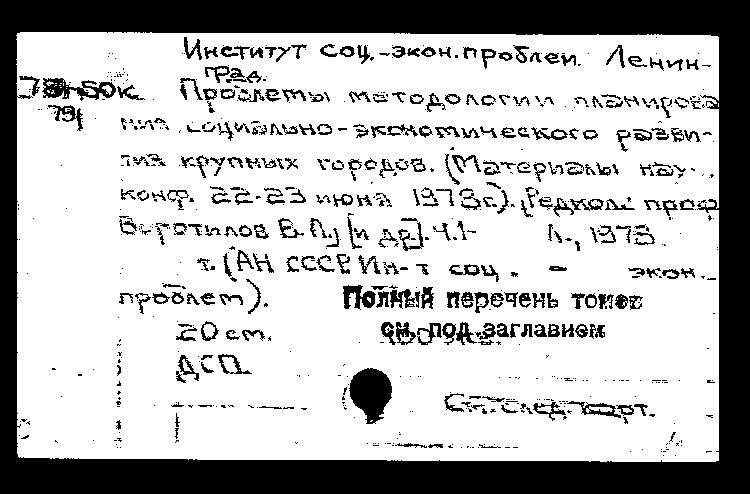 Институт соц.-экон.проблем. Ленин-
град.
Проблемы методологии планирова
79ј
ния социально-экономического разви-
тия крупных городов. (Материалы науч.
конф. 22-23 июня 1978г.). [Редкол.: проф
Воротилов В.А., [и др.]. Ч.1- Л., 1978.
т. (АН СССР. Ин-т соц. - экон.
проблем).
Полный перечень томов
20 см.
см. под заглавием
ДСП.
См.след.карт.